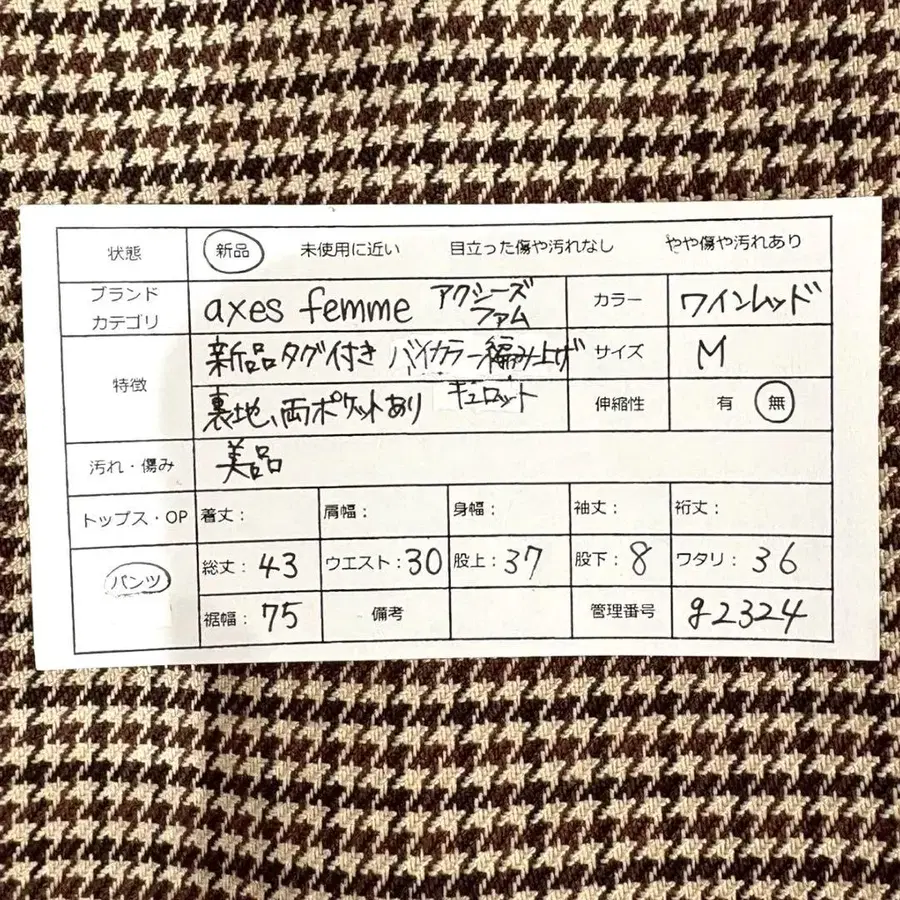 状態 新品 未使用に近い 目立った傷や汚れなし やや傷や汚れあり
ブランド
カテゴリ
axes femme アクシーズ
ファム
カラー ワインレッド
特徴
新品タグ付き バイカラー編み上げ
サイズ M
裏地、両ポケットあり キュロット
伸縮性 有 無
汚れ・傷み 美品
トップス・OP 着丈： 肩幅： 身幅： 袖丈： 裄丈：
パンツ 総丈：43 ウエスト：30 股上：37 股下：8 ワタリ：36
裾幅：75 備考 管理番号 g2324